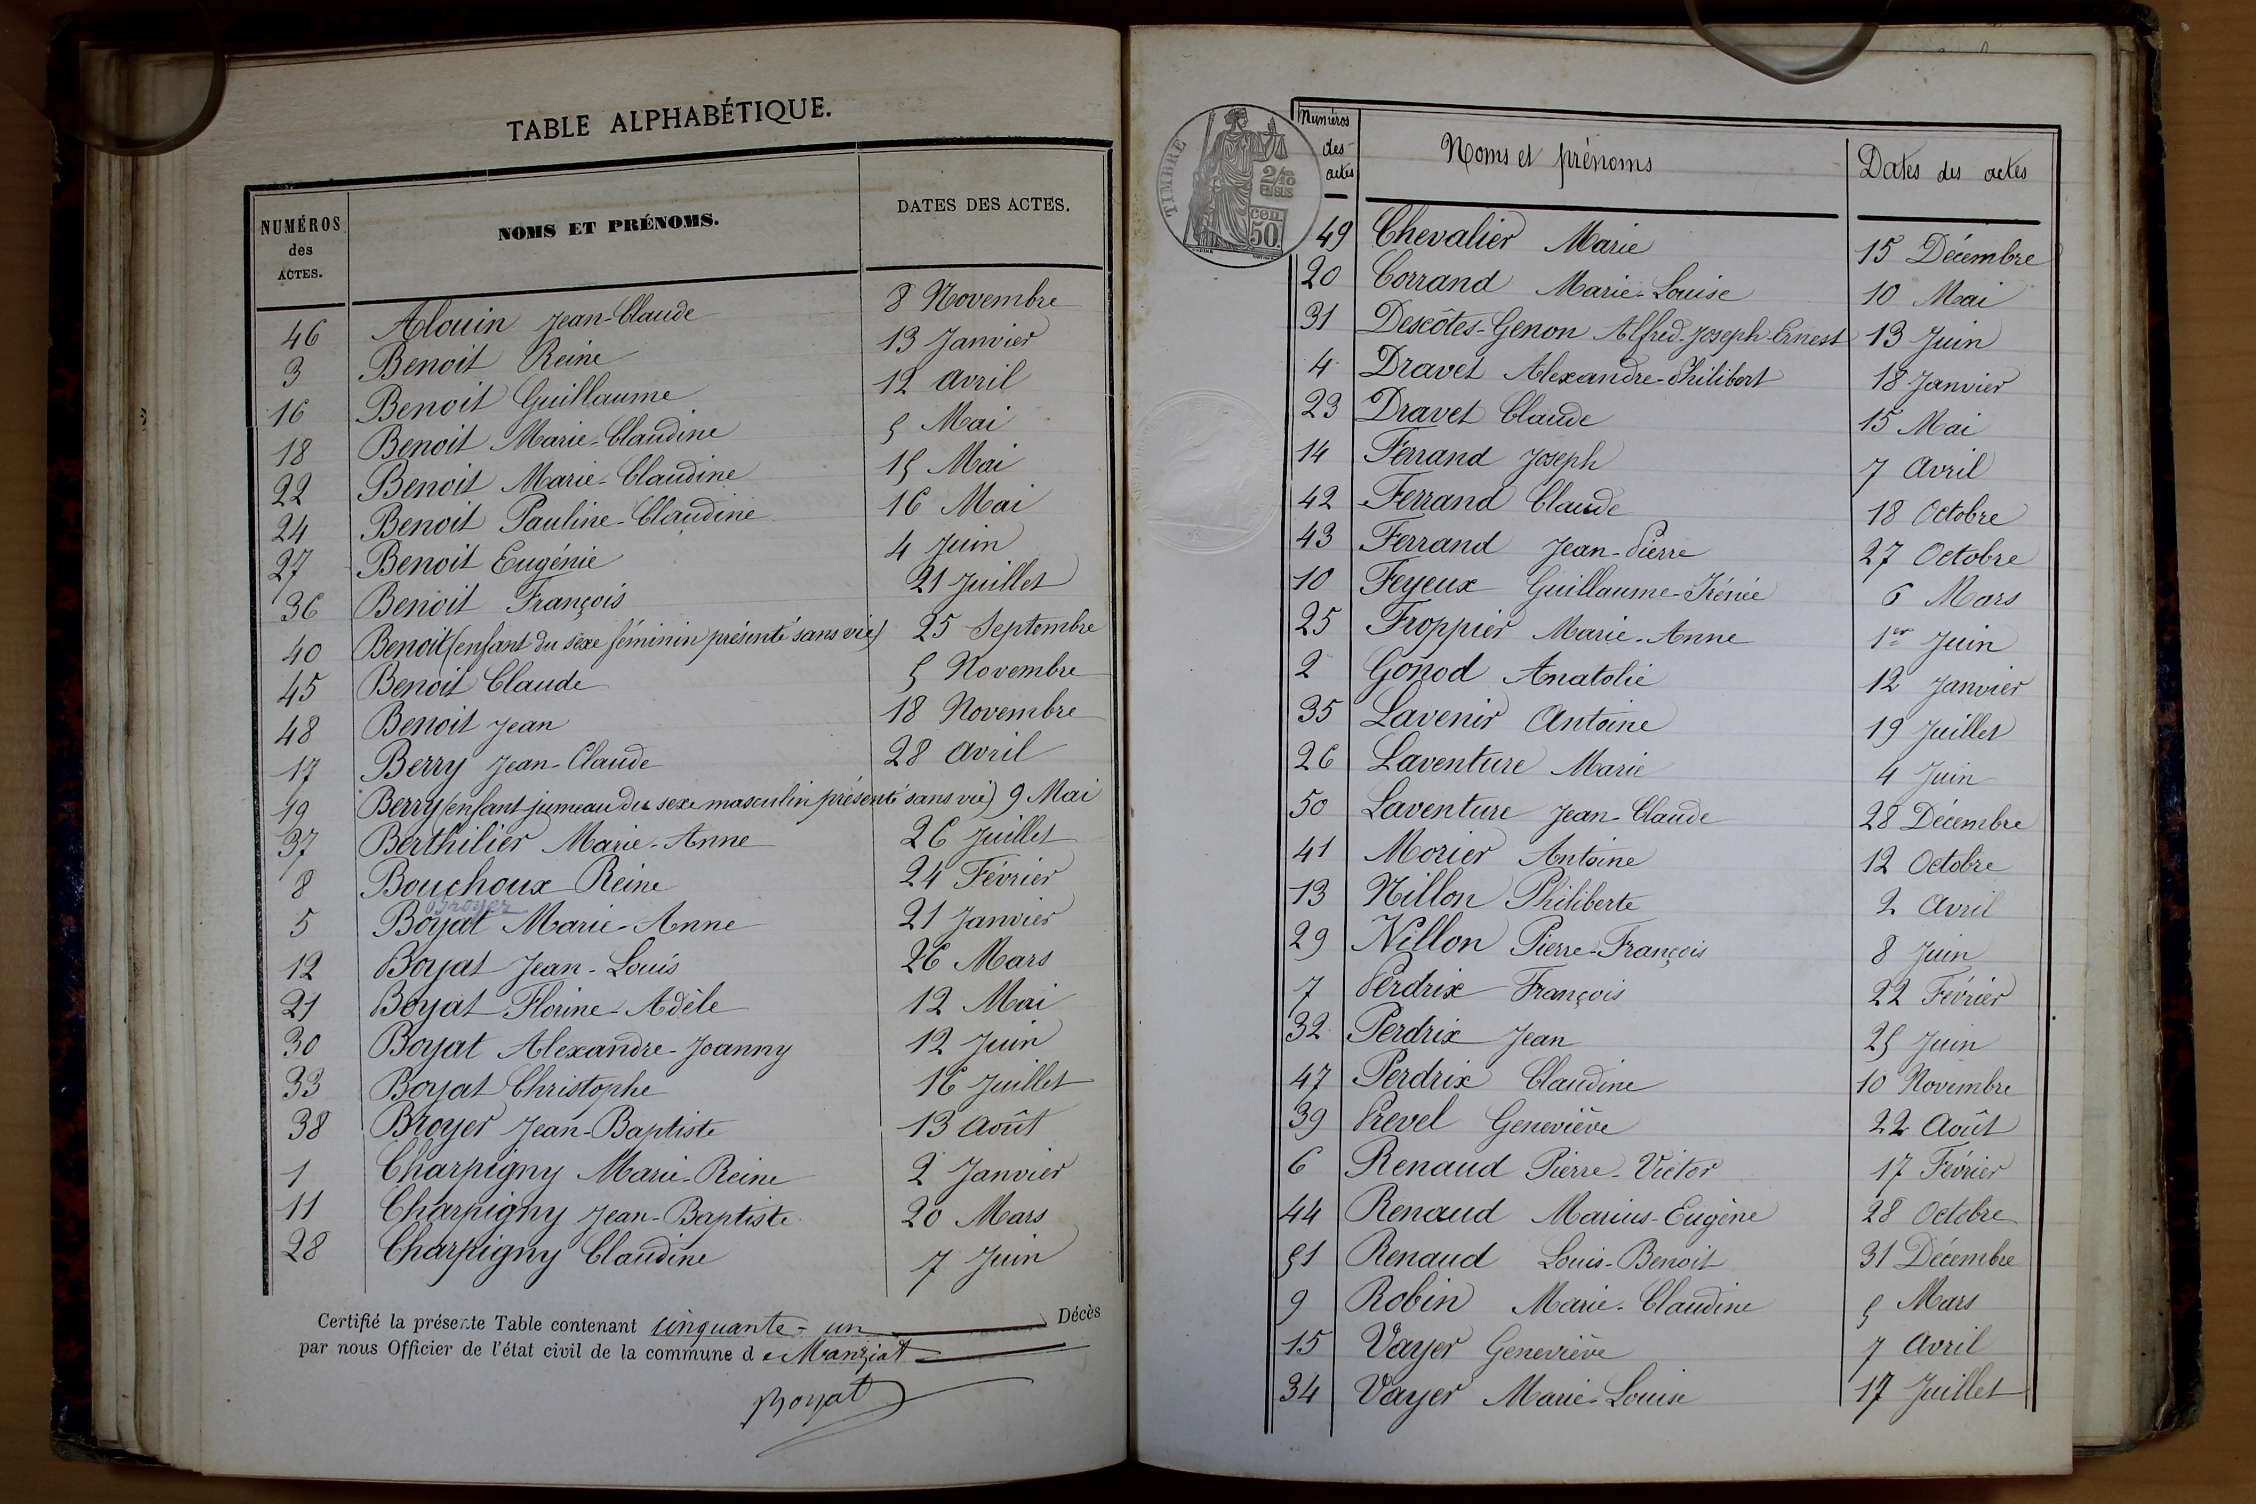 TABLE ALPHABÉTIQUE.
NUMÉROS des ACTES. NOMS ET PRÉNOMS. DATES DES ACTES.
46 Alouin Jean-Claude 8 Novembre
3 Benoit Reine 13 Janvier
16 Benoit Guillaume 12 Avril
18 Benoit Marie-Claudine 5 Mai
22 Benoit Marie-Claudine 15 Mai
24 Benoit Pauline-Claudine 16 Mai
27 Benoit Eugénie 4 Juin
36 Benoit François 21 Juillet
40 Benoit (enfant du sexe féminin présenté sans vie) 25 Septembre
45 Benoit Claude 5 Novembre
48 Benoit Jean 18 Novembre
17 Berry Jean-Claude 28 Avril
19 Berry (enfant jumeau du sexe masculin présenté sans vie) 9 Mai
37 Berthilier Marie-Anne 26 Juillet
8 Bouchoux Reine 24 Février
Broyer
5 Boyat Marie-Anne 21 Janvier
12 Boyat Jean-Louis 26 Mars
21 Boyat Florine-Adèle 12 Mai
30 Boyat Alexandre-Joanny 12 Juin
33 Boyat Christophe 16 Juillet
38 Broyer Jean-Baptiste 13 Août
1 Charpigny Marie-Reine 2 Janvier
11 Charpigny Jean-Baptiste 20 Mars
28 Charpigny Claudine 7 Juin
Certifié la présente Table contenant cinquante-un Décès
par nous Officier de l'état civil de la commune d e Manziat
Boyat
TIMBRE
2/10 EN SUS
CEN. 50.
Numéros des actes Noms et prénoms Dates des actes
49 Chevalier Marie 15 Décembre
20 Corrand Marie-Louise 10 Mai
31 Descôtes-Genon Alfred-Joseph-Ernest 13 Juin
4 Dravet Alexandre-Philibert 18 Janvier
23 Dravet Claude 15 Mai
14 Ferrand Joseph 7 Avril
42 Ferrand Claude 18 Octobre
43 Ferrand Jean-Pierre 27 Octobre
10 Feyeux Guillaume-Irénée 6 Mars
25 Froppier Marie-Anne 1er Juin
2 Gonod Anatolie 12 Janvier
35 Lavenir Antoine 19 Juillet
26 Laventure Marie 4 Juin
50 Laventure Jean-Claude 28 Décembre
41 Morier Antoine 12 Octobre
13 Nillon Philiberte 2 Avril
29 Nillon Pierre-François 8 Juin
7 Perdrix François 22 Février
32 Perdrix Jean 25 Juin
47 Perdrix Claudine 10 Novembre
39 Prevel Geneviève 22 Août
6 Renaud Pierre-Victor 17 Février
44 Renaud Marius-Eugène 28 Octobre
51 Renaud Louis-Benoit 31 Décembre
9 Robin Marie-Claudine 5 Mars
15 Vayer Geneviève 7 Avril
34 Vayer Marie-Louise 17 Juillet